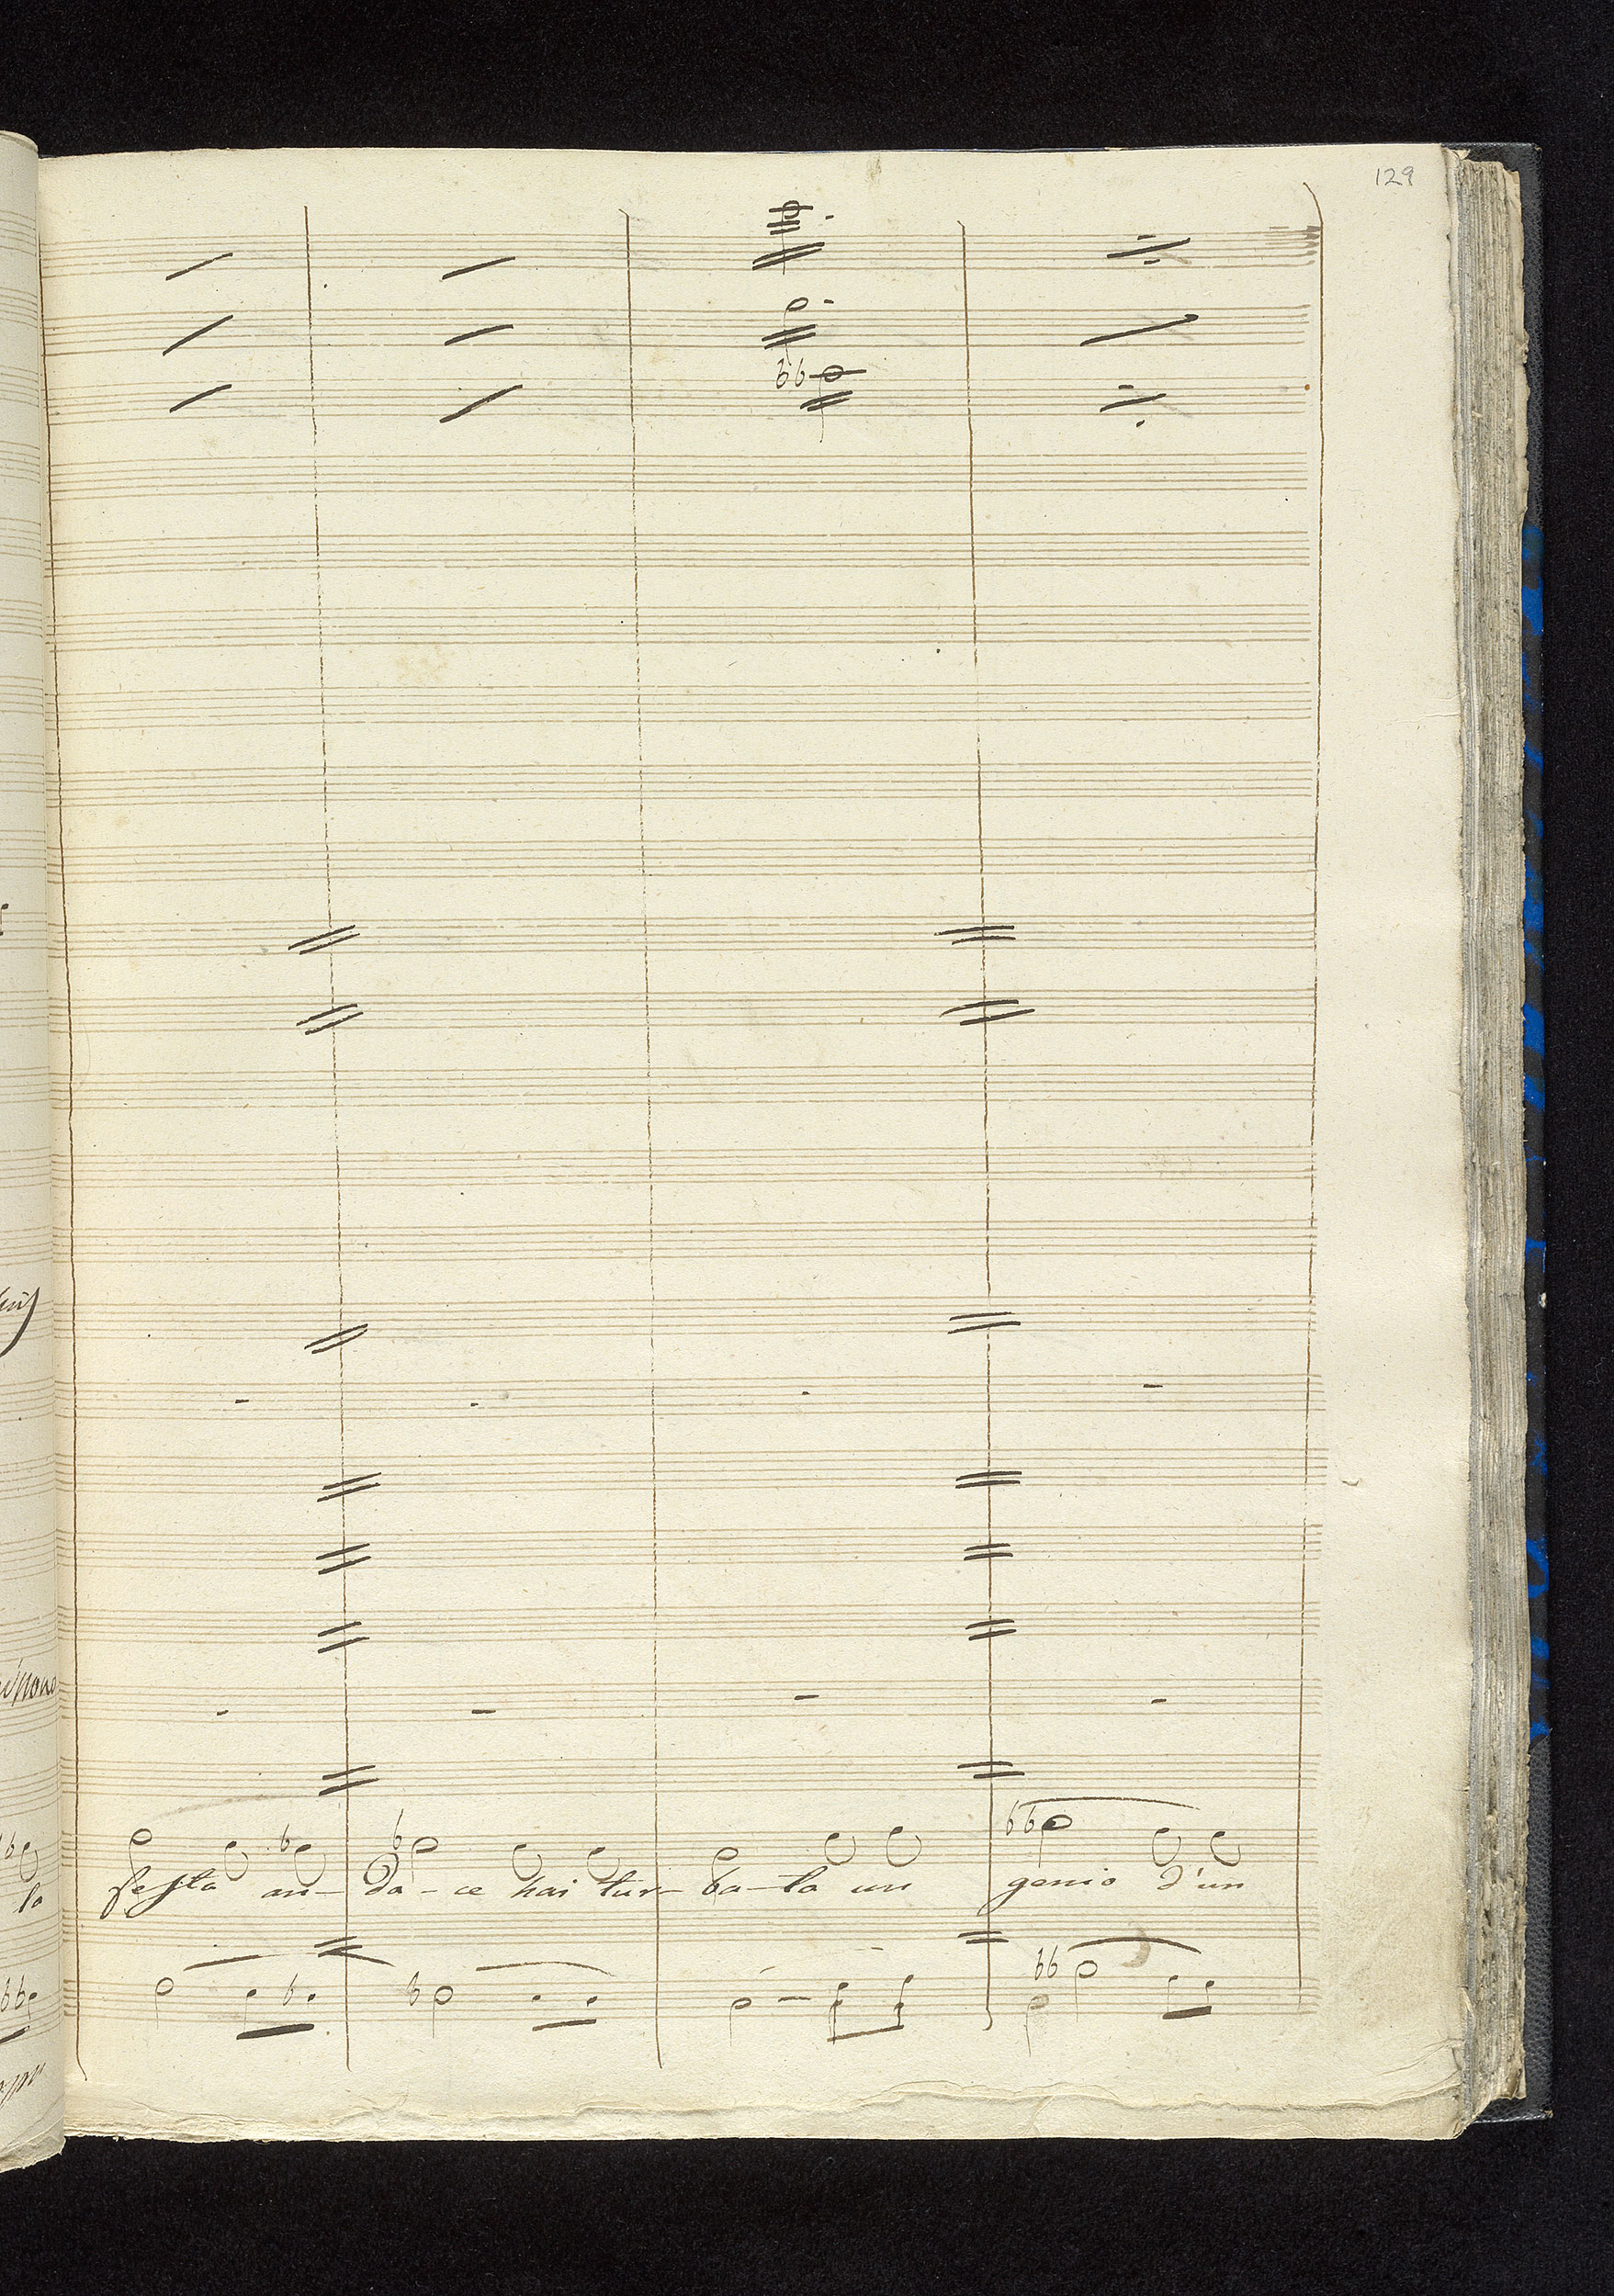 129
la festa an-da-ce hai tur-ba-ta un genio d'un